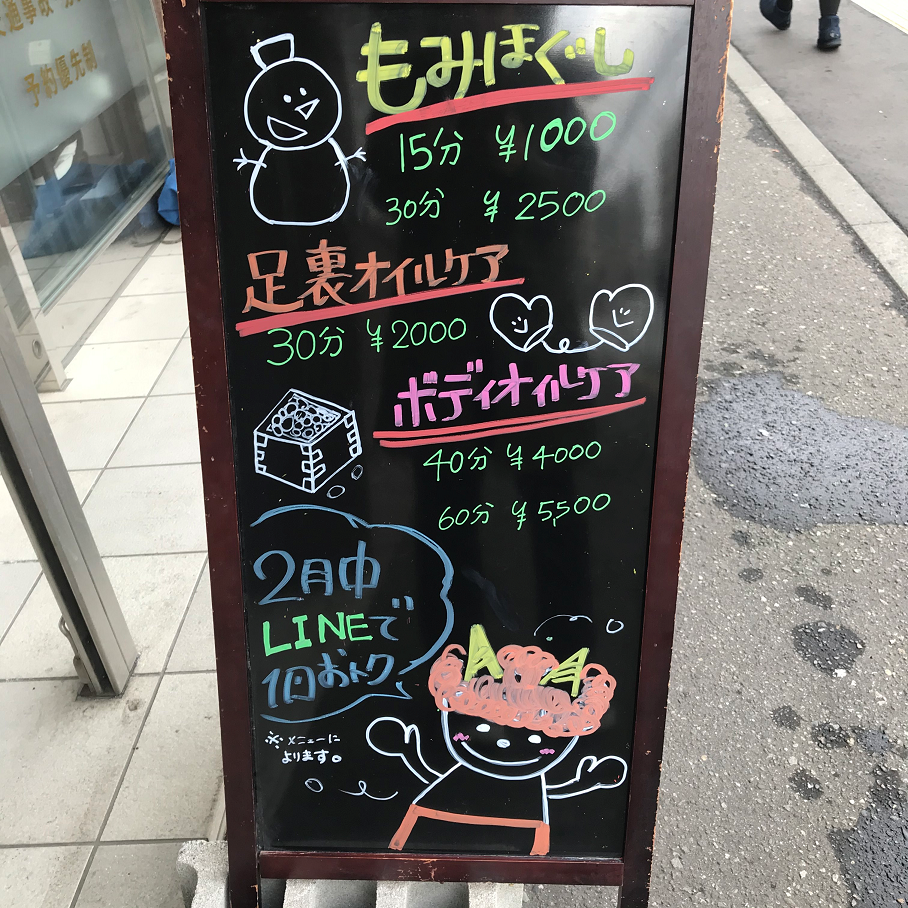 予約優先制
もみほぐし
15分 ¥1000
30分 ¥2500
足裏オイルケア
30分 ¥2000
ボディオイルケア
40分 ¥4000
60分 ¥5,500
2月中
LINEで
1回おトク
※メニューに
よります。